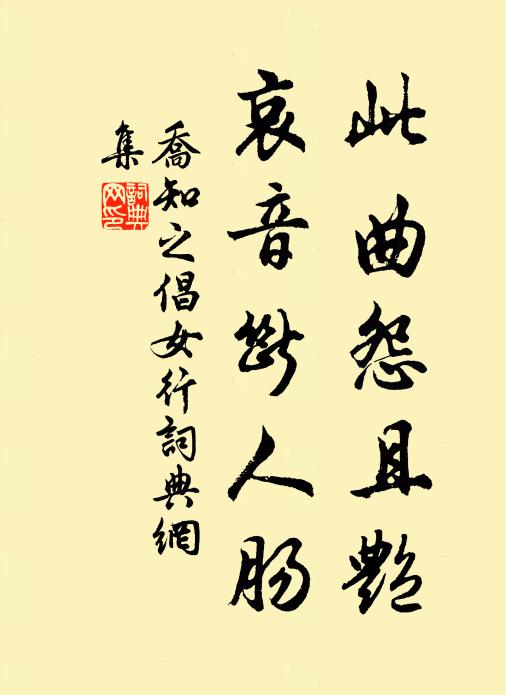 此曲怨且艷
哀音斷人腸
喬知之倡女行詞典網
集
詞典
网印